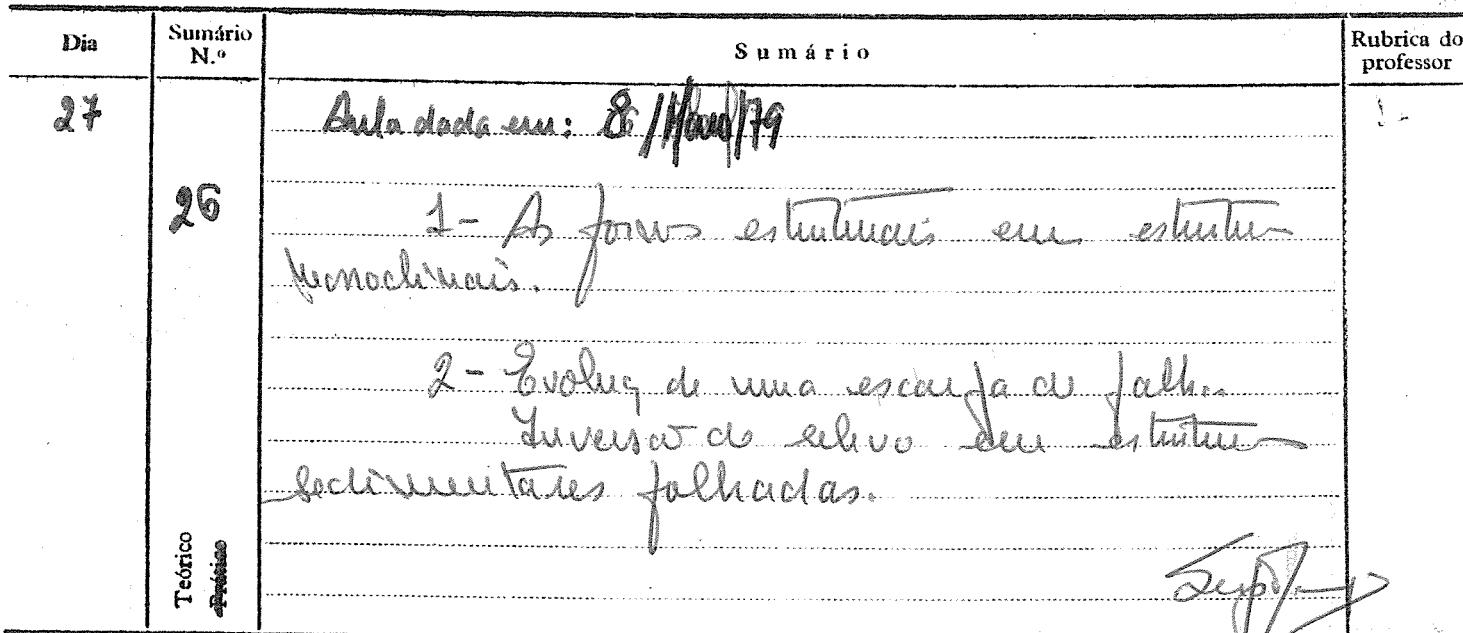 Dia
Sumário N.º
Sumário
Rubrica do professor
27
Aula dada em: 8/ /79
26
1- As formas estruturais em estruturas
monoclinais.
2- Evoluç de uma escarpa de falha
Inversão do relevo em estruturas
sedimentares falhadas.
Teórico
Prático